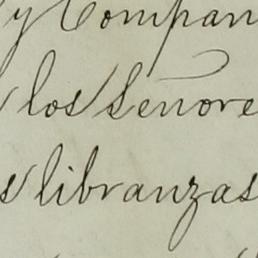 y Compan
los Señore
s libranzas